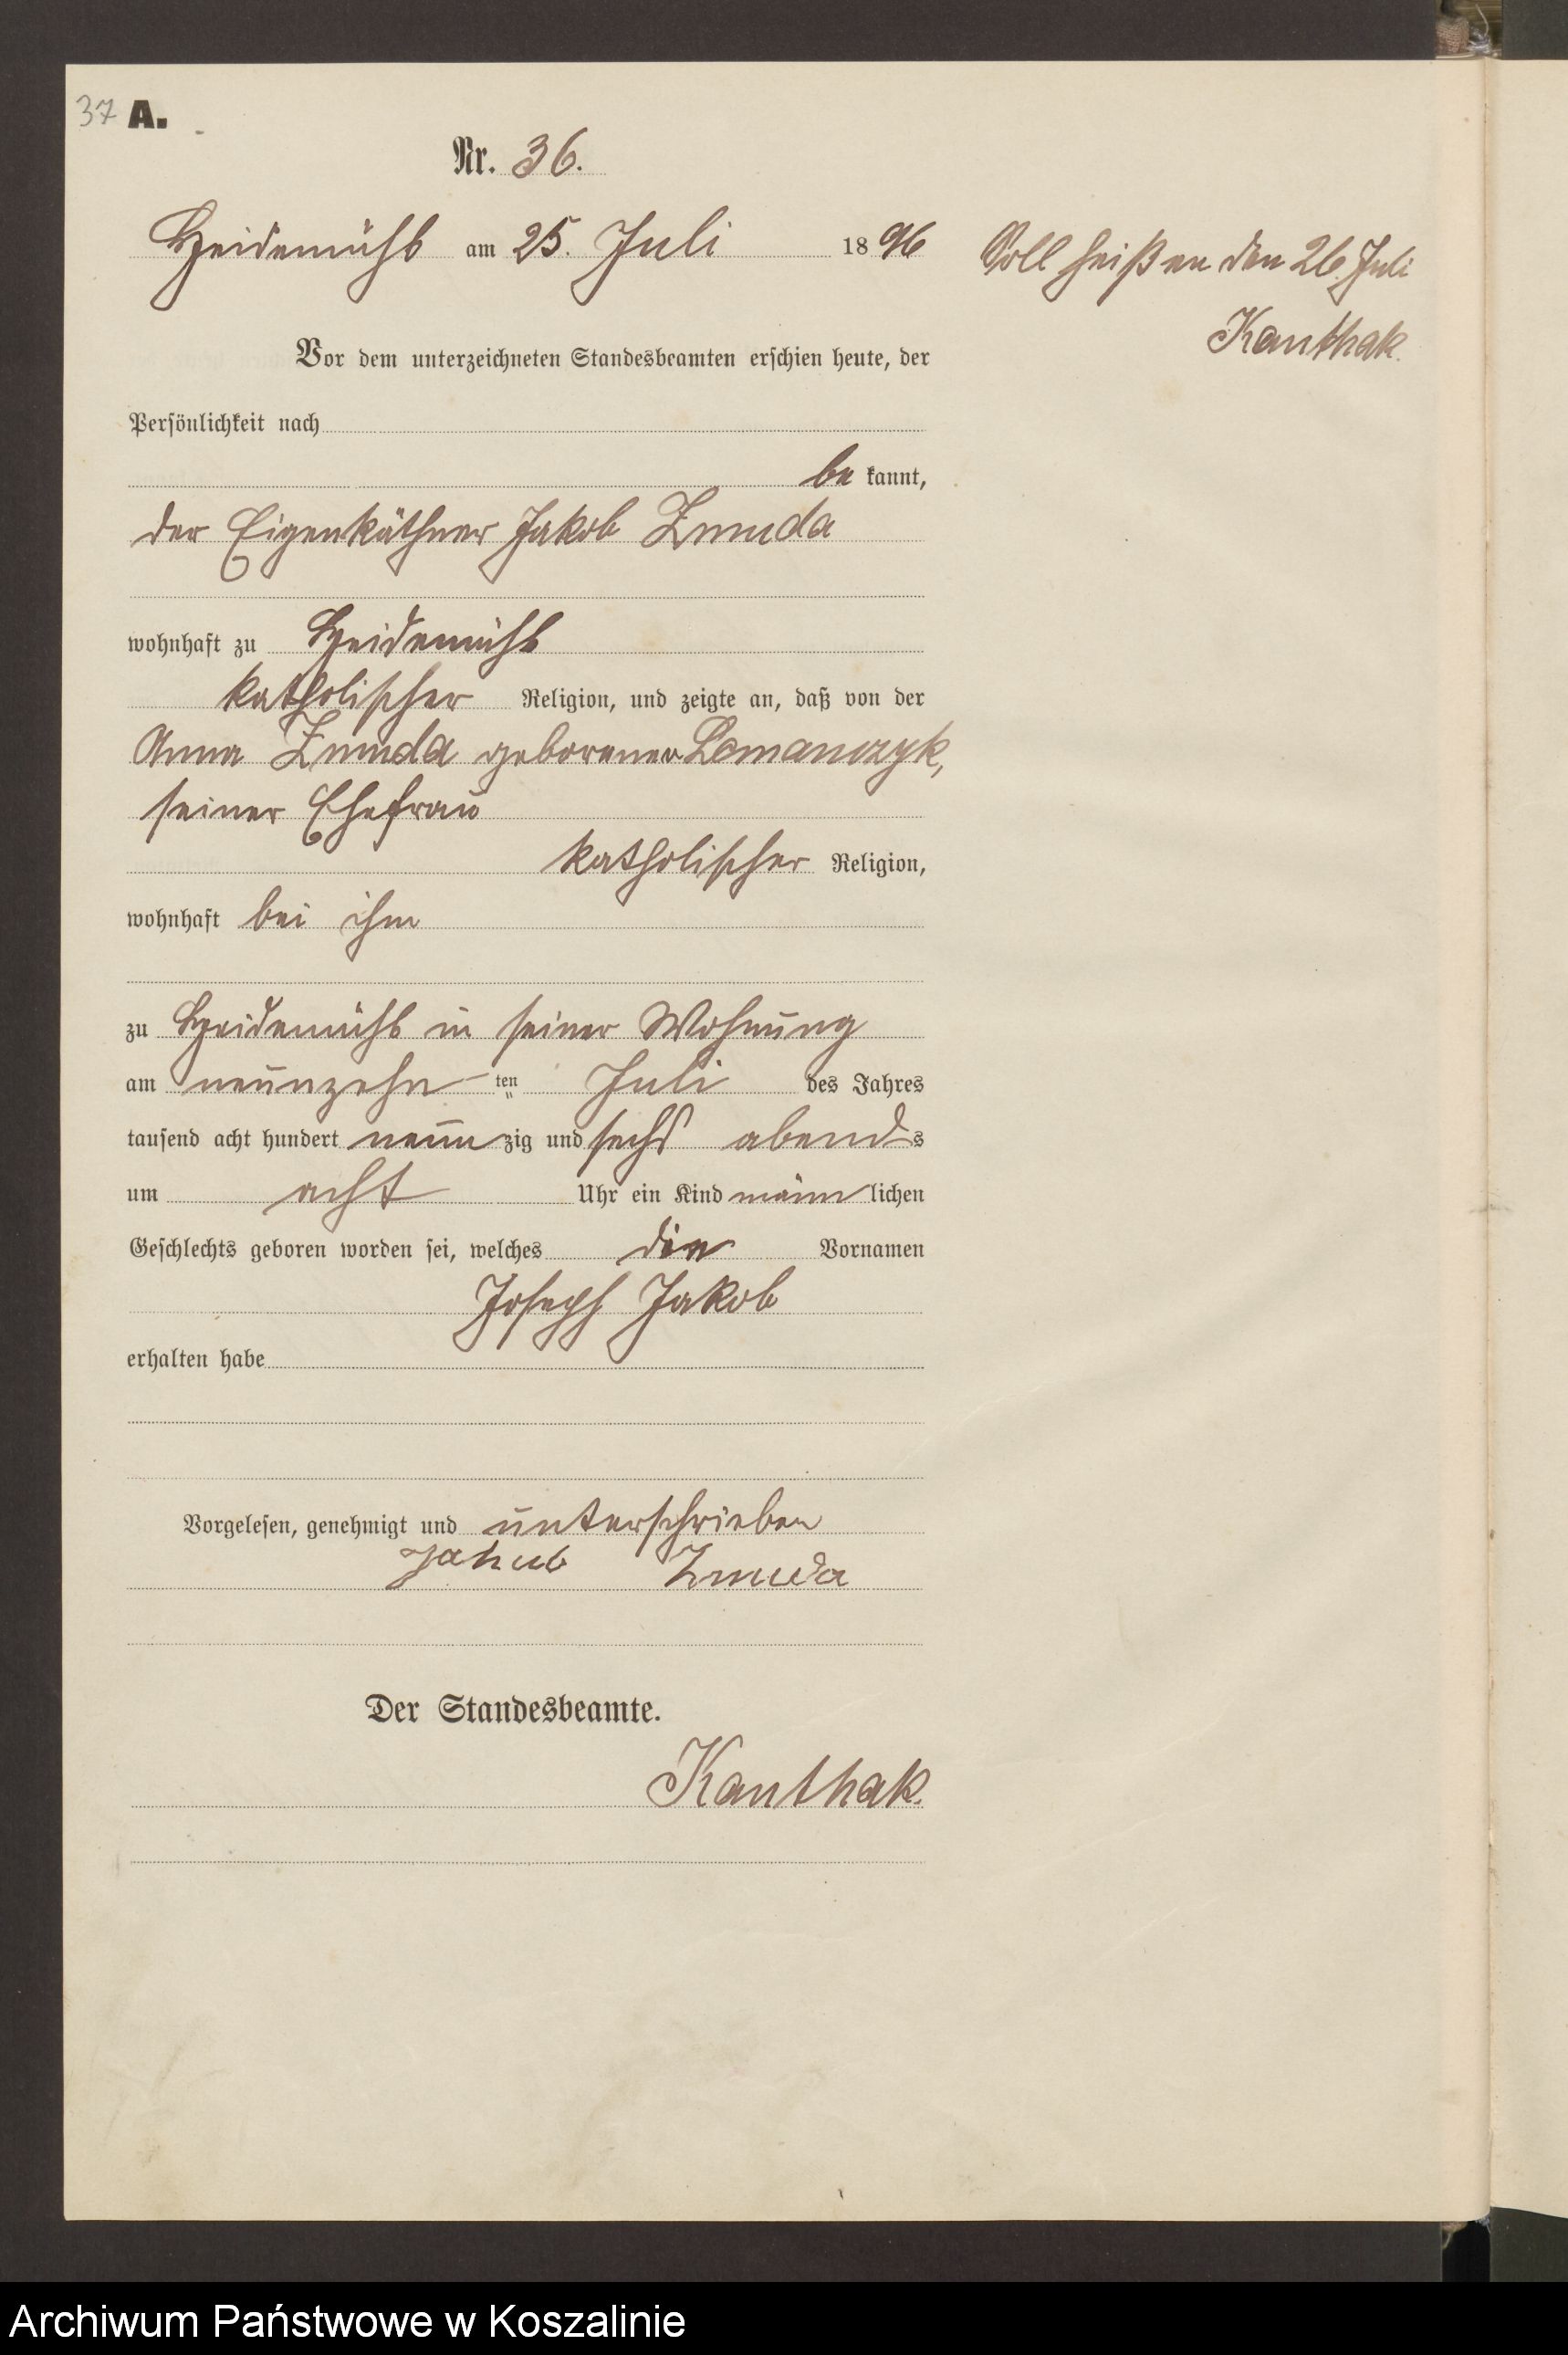 37 A.
Nr. 36.
Heidemühl am 25. Juli 1896
Soll heißen den 26. Juli
Kanthak.
Vor dem unterzeichneten Standesbeamten erschien heute, der
Persönlichkeit nach
be kannt,
der Eigenkäthner Jakob Zmuda
wohnhaft zu Heidemühl
katholischer Religion, und zeigte an, daß von der
Anna Zmuda geborenen Lomanczyk,
seiner Ehefrau
katholischer Religion,
wohnhaft bei ihm
zu Heidemühl in seiner Wohnung
am neunzehn ten Juli des Jahres
tausend acht hundert neun zig und sechs abends
um acht Uhr ein Kind männlichen
Geschlechts geboren worden sei, welches die Vornamen
Joseph Jakob
erhalten habe
Vorgelesen, genehmigt und unterschrieben
Jakub Zmuda
Der Standesbeamte.
Kanthak.
Archiwum Państwowe w Koszalinie